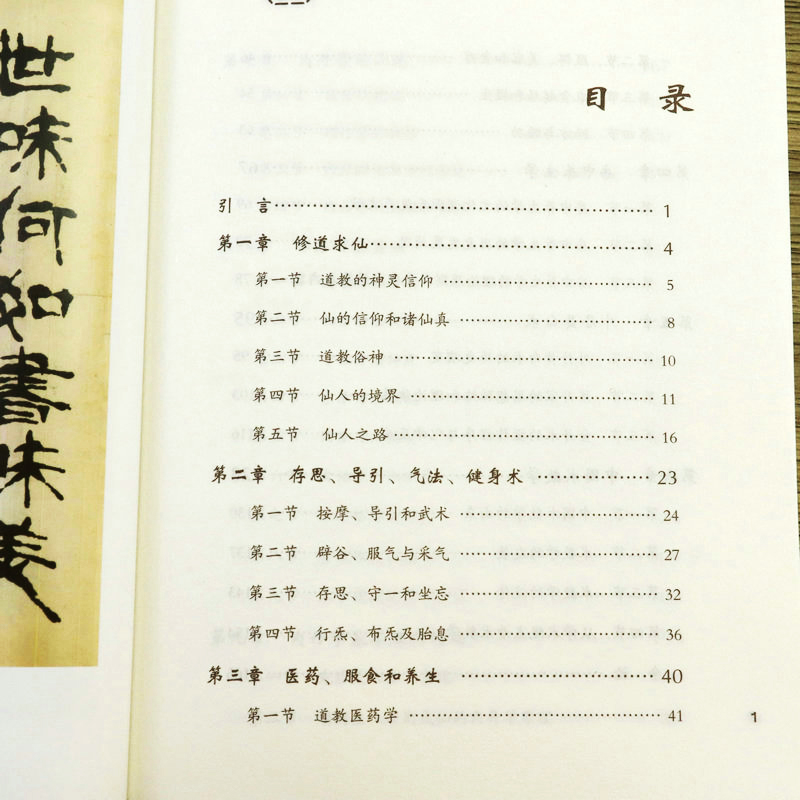 世味何如書味羙
目 录
引 言 1
第一章 修道求仙 4
第一节 道教的神灵信仰 5
第二节 仙的信仰和诸仙真 8
第三节 道教俗神 10
第四节 仙人的境界 11
第五节 仙人之路 16
第二章 存思、导引、气法、健身术 23
第一节 按摩、导引和武术 24
第二节 辟谷、服气与采气 27
第三节 存思、守一和坐忘 32
第四节 行炁、布炁及胎息 36
第三章 医药、服食和养生 40
第一节 道教医药学 41
1